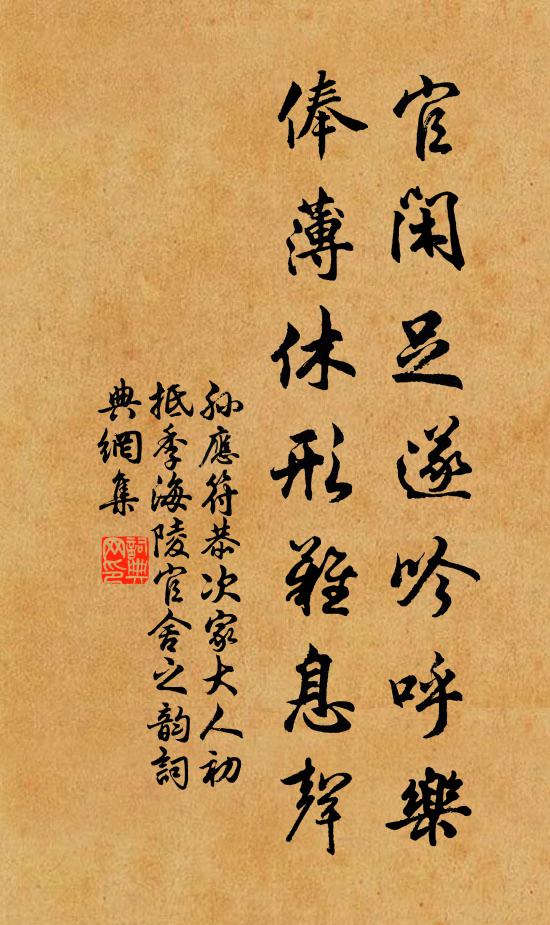 官閑足遂吟呼樂
俸薄休形難息聲
孫應符恭次家大人初
抵季海陵官舍之韵詞
典網集
詞典
网印